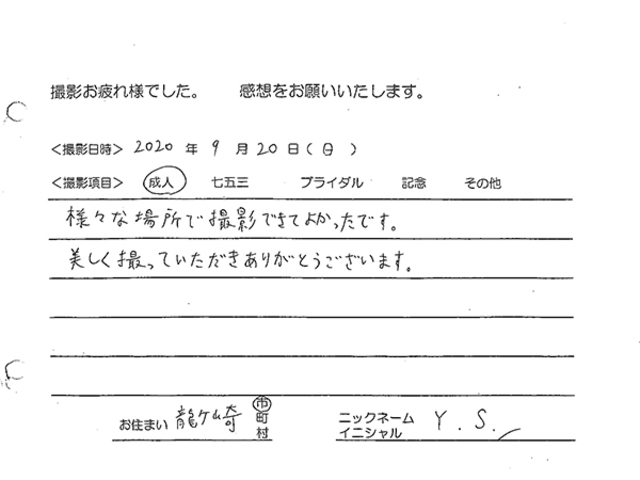 撮影お疲れ様でした。　感想をお願いいたします。
<撮影日時> 2020 年 9 月 20 日 ( 日 )
<撮影項目> 成人　七五三　ブライダル　記念　その他
様々な場所で撮影できてよかったです。
美しく撮っていただきありがとうございます。
お住まい 龍ケ崎 市 町 村
ニックネーム イニシャル Y.S.